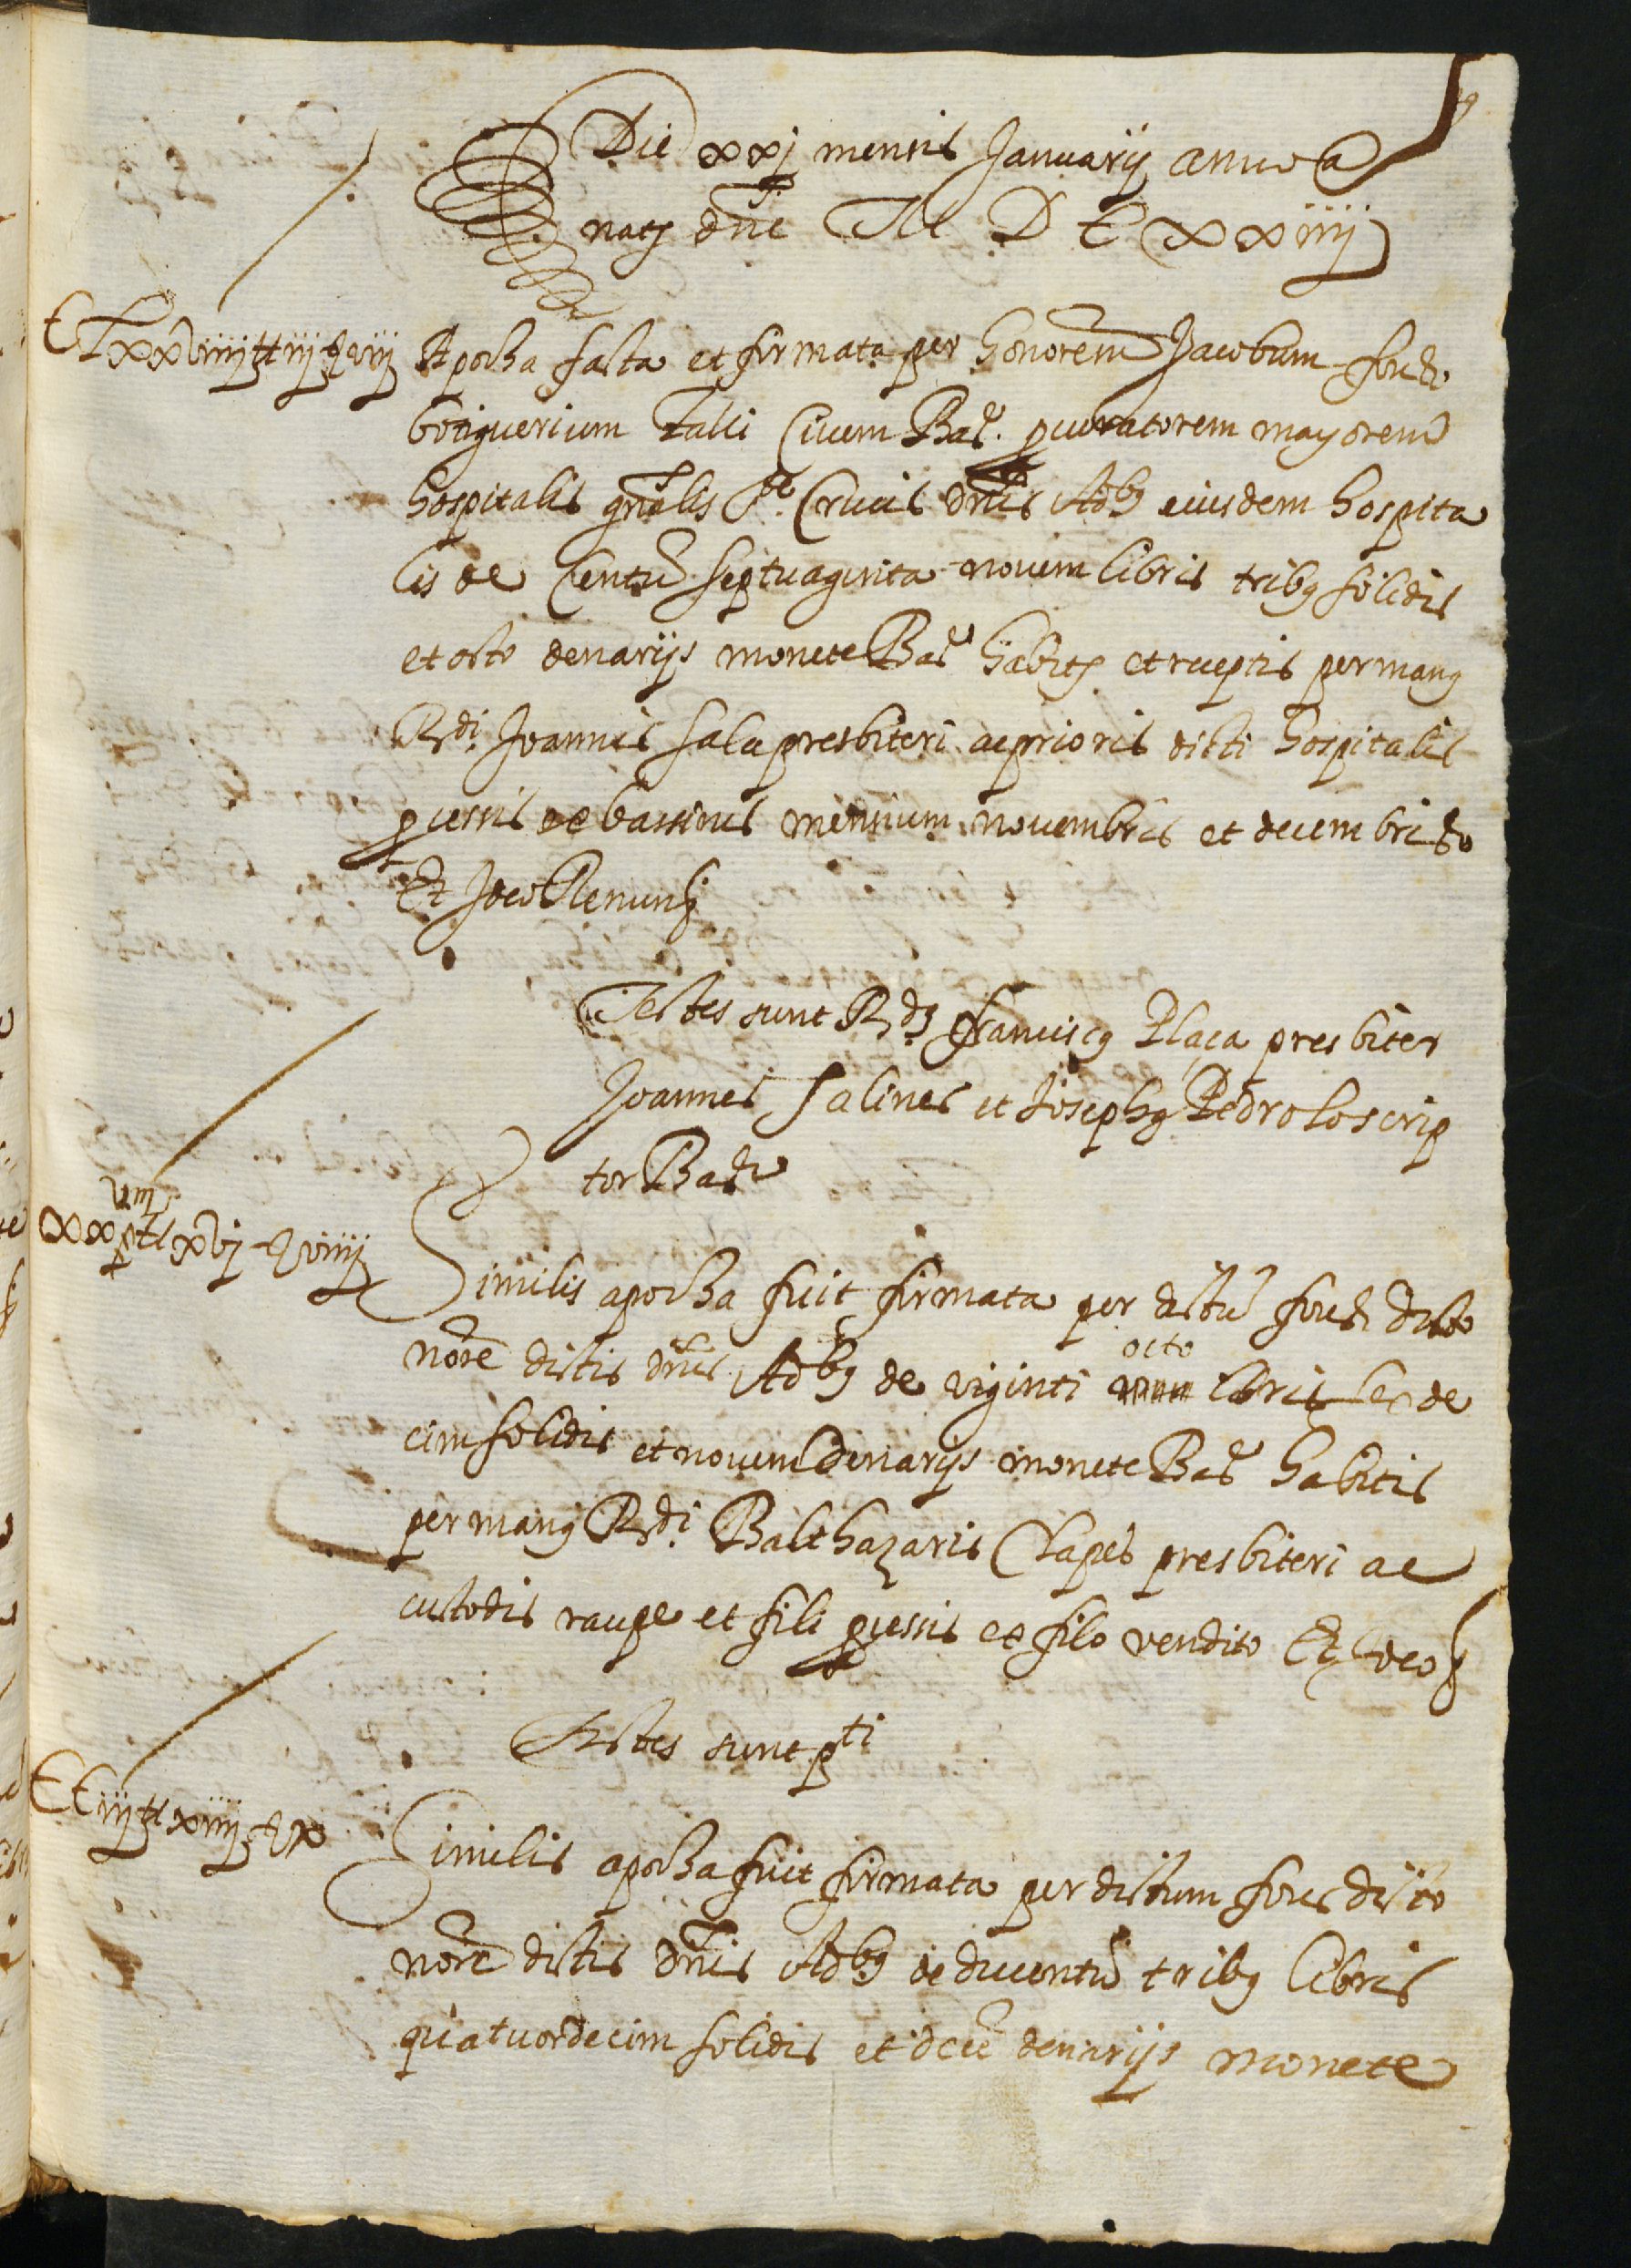 Die xxj mensis Januarij anno a
natj dni M D C xxiiij
CLxxviiij ℔ iij ß viij
Apocha facta et firmata per honorem Jacobum
botiguerium Talli Civem Bar. procuratorem mayorem
hospitalis gnalis Ste Crucis dnis Adbq eiusdem hospita
lis de Centu septuaginta novem libris tribq solidis
et octo denarijs monete Bar habitj et receptis per manq
Rdi Joannis Sala presbiteri ac prioris dicti hospitalis
processis de bassinis mensium novembris et decembris
Et Ideo Renunt
Testes sunt Rdq Franciscq Plaça presbiter
Joannes Salines et Josephq Pedrolo scrip
tor Bar
xxviij ℔ xvj ß viiij
Similis apocha fuit firmata per dictu dicto
noie dictis dnis Adbq de viginti octo libris sex de
cim solidis et novem denarijs monete Bar habitis
per manq Rdi Balthazaris Clapes presbiteri ac
custodis raupe et fili processis ex filo vendito Et Ideo
Testes sunt pti
CCiij ℔ xiiij ß x
Similis apocha fuit firmata per dictum dicto
noie dictis dnis Adbq de ducentu tribq libris
quatuordecim solidis et dece denarijs monete